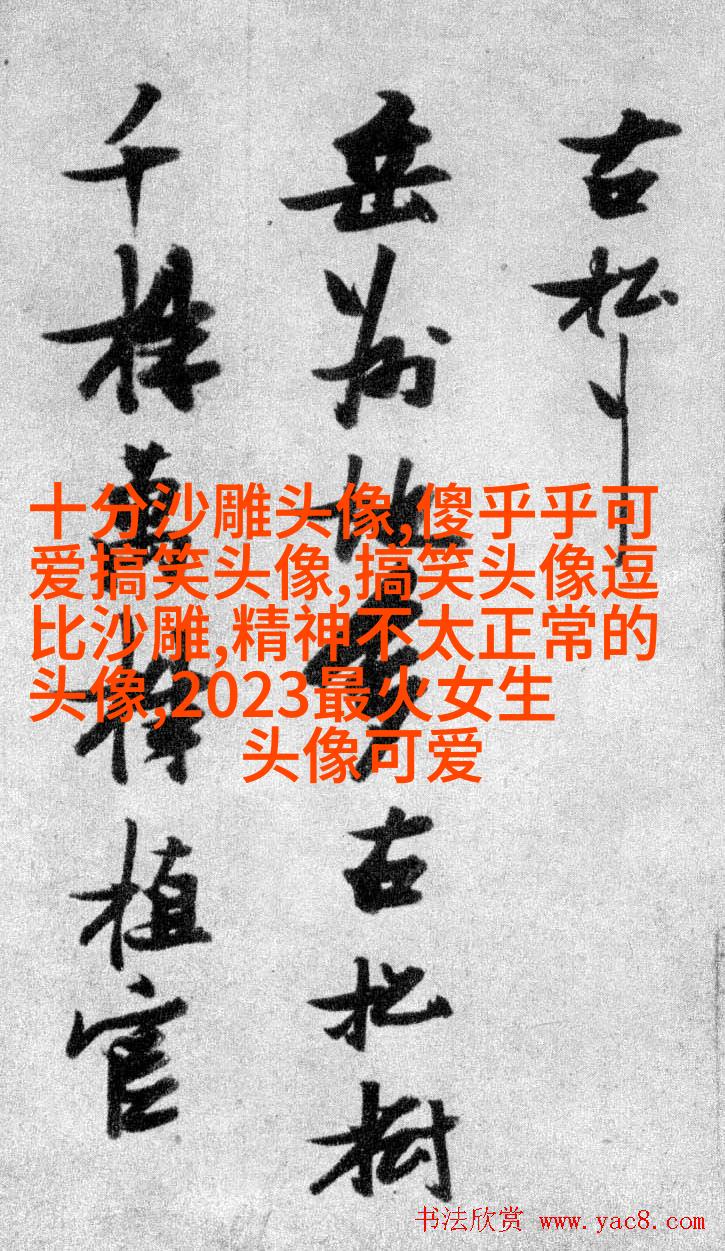 古松行
岳州地多古松樹
千株萬株植官
十分沙雕头像,傻乎乎可
爱搞笑头像,搞笑头像逗
比沙雕,精神不太正常的
头像,2023最火女生
头像可爱
书法欣赏 www.yac8.com